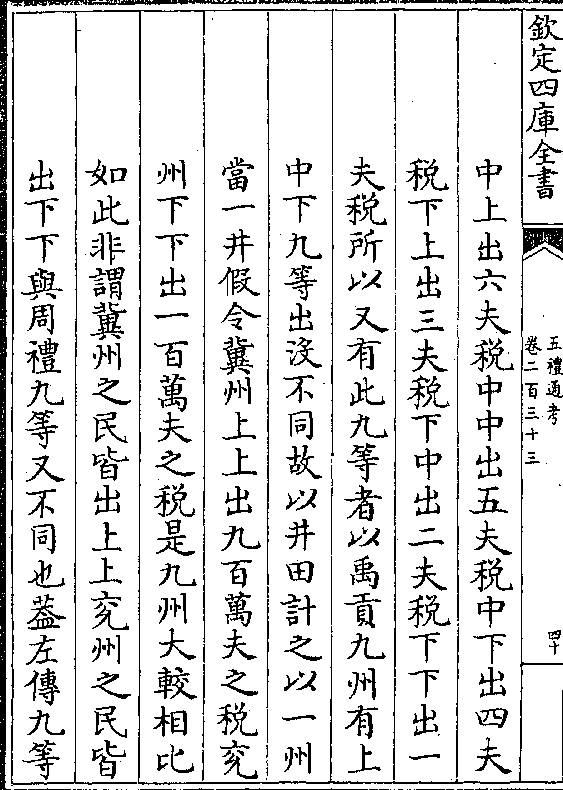 欽定四庫全書
五禮通考
卷二百三十三
四十
中上出六夫税中中出五夫税中下出四夫
税下上出三夫税下中出二夫税下下出一
夫税所以又有此九等者以禹貢九州有上
中下九等出没不同故以井田計之以一州
當一井假令冀州上上出九百萬夫之税兖
州下下出一百萬夫之税是九州大較相比
如此非謂冀州之民皆出上上兖州之民皆
出下下與周禮九等又不同也葢左傳九等